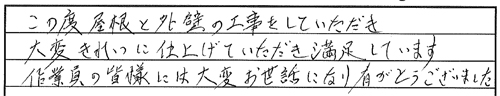 この度屋根と外壁の工事をしていただき
大変きれいに仕上げていただき満足しています
作業員の皆様には大変お世話になり有がとうございました